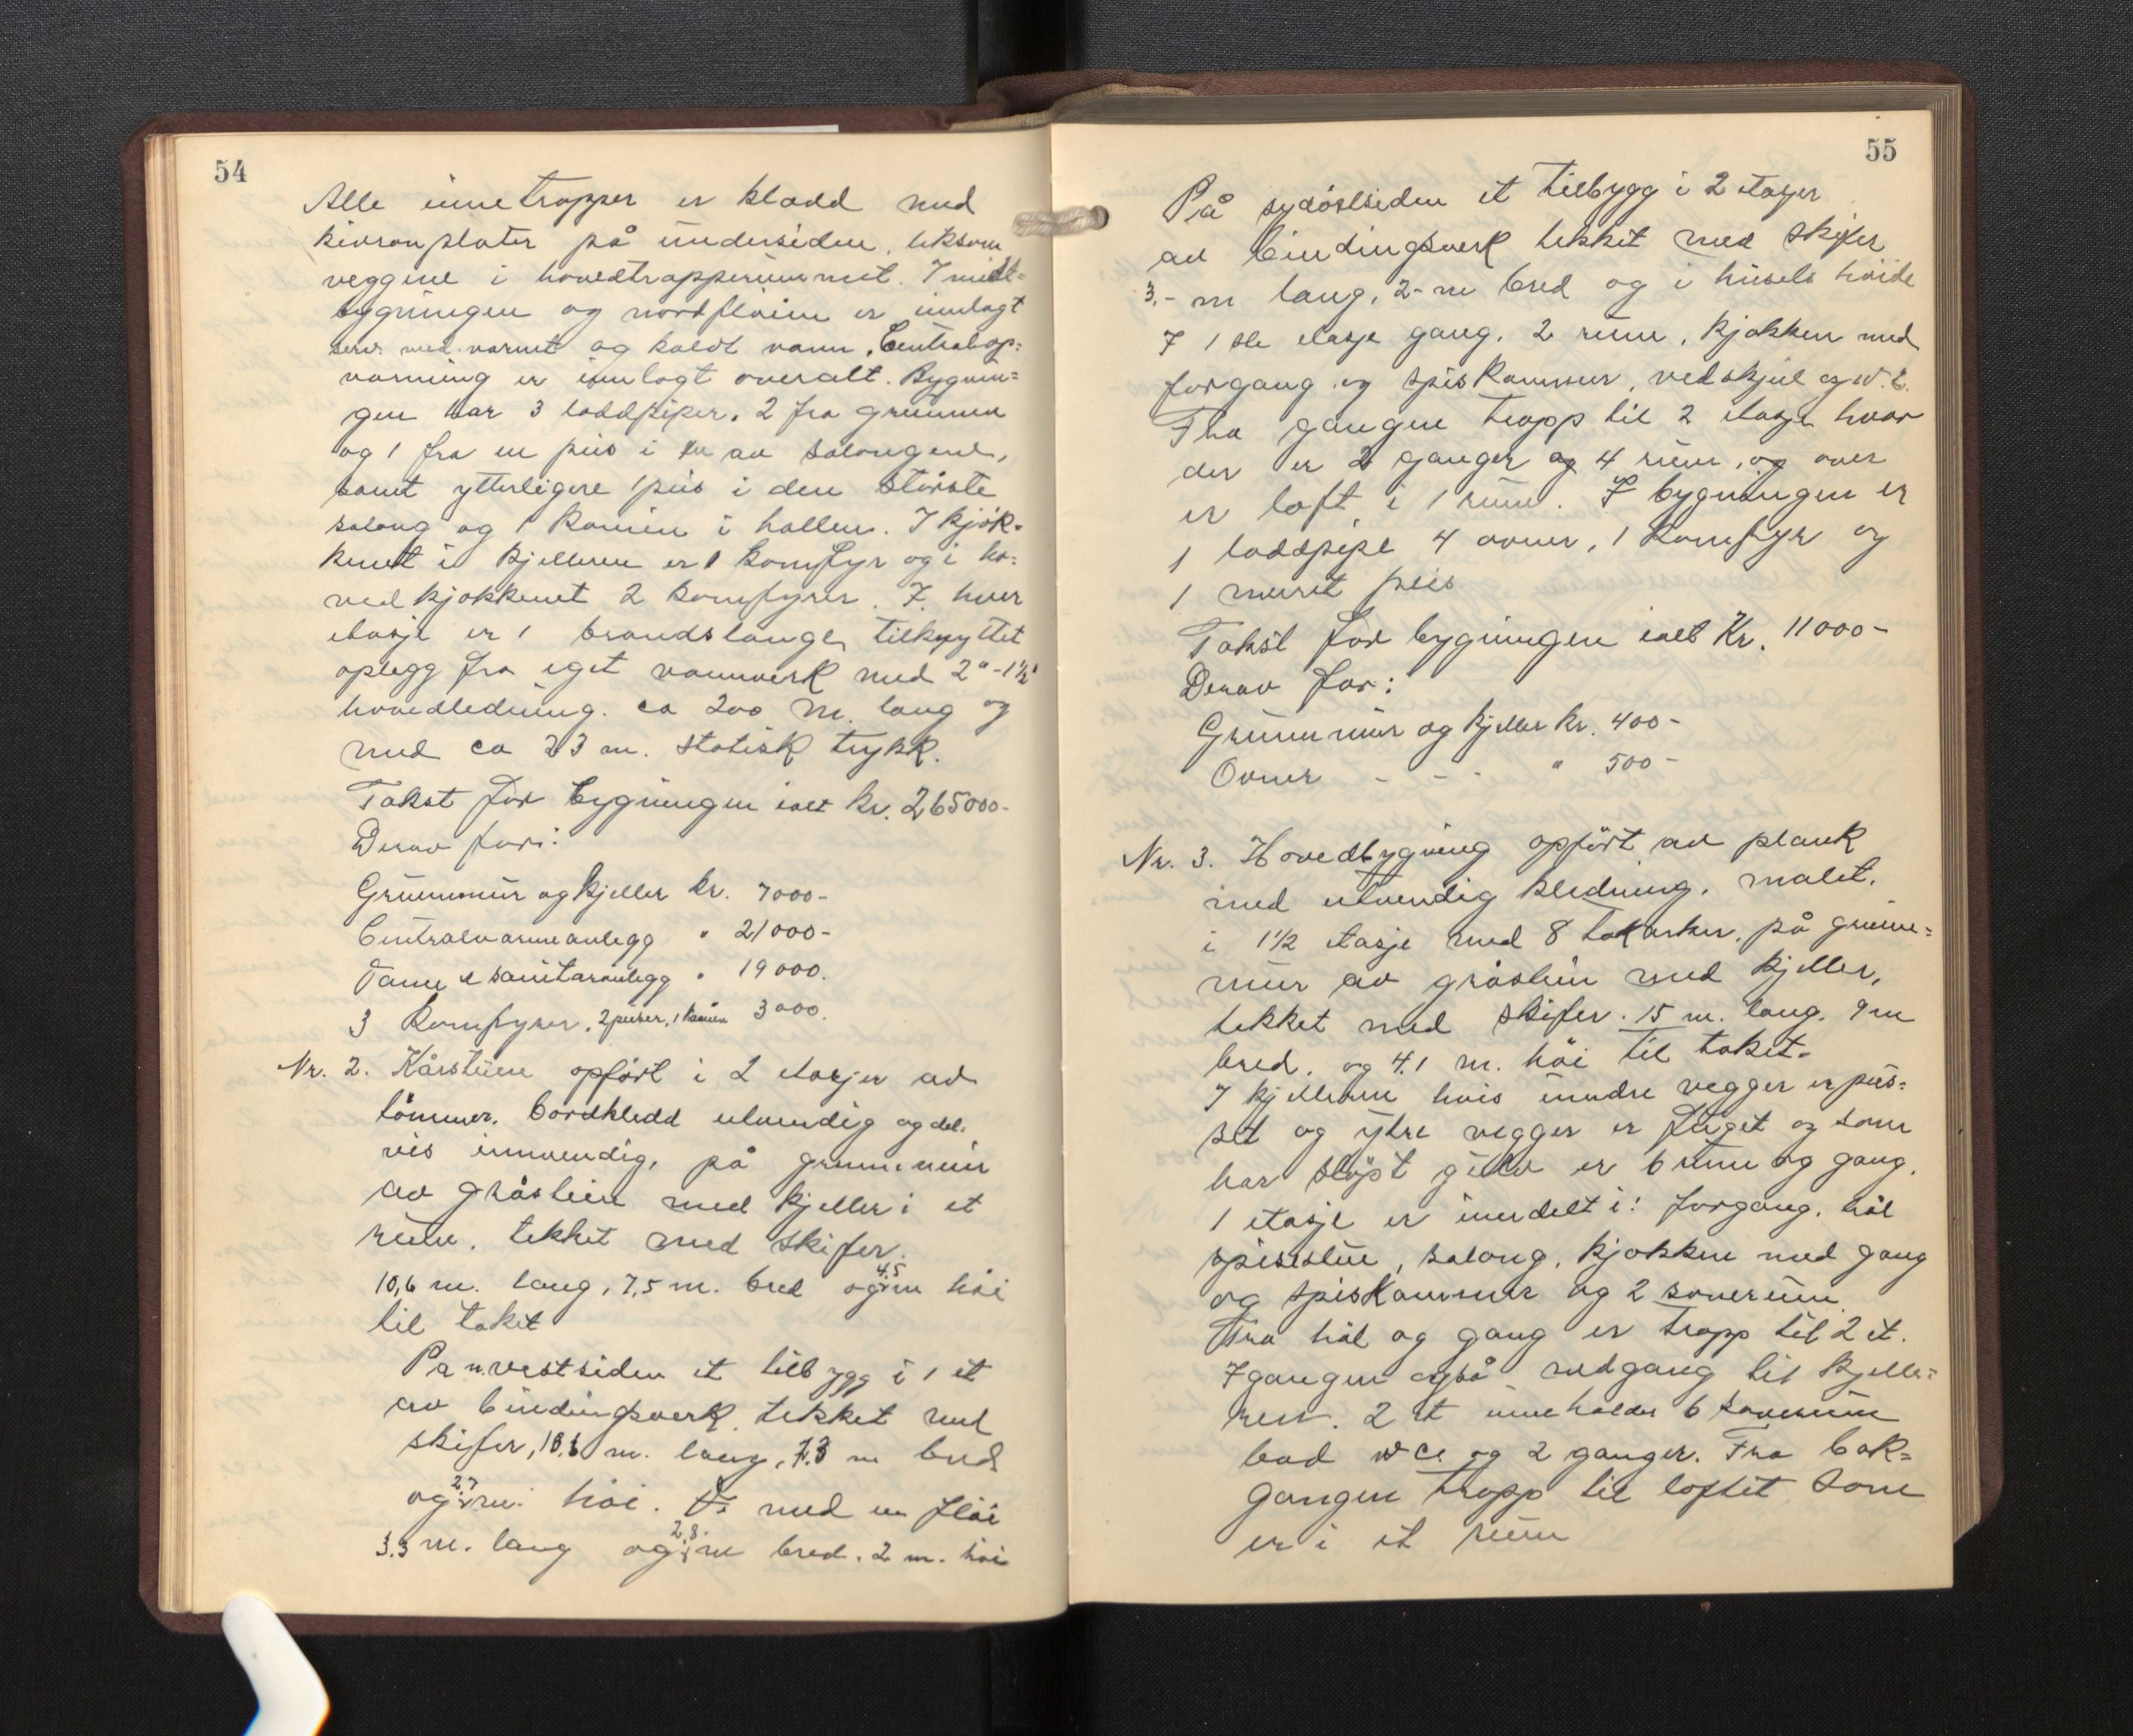 54
Alle innetrapper er kledd med
kiorsonplater på undersiden, liksom
veggene i hovedtrapperummet. I midt-
bygningen og nordfløien er innlagt
serv. med varmt og koldt vann. Centralop-
varming er innlagt overalt. Bygnin-
gen har 3 loddpiper, 2 fra grunnen
og 1 fra en peis i en av salongene,
samt ytterligere 1 peis i den største
salong og 1 kamin i hallen. I kjøk-
kenet i kjelleren er 1 komfyr og i ho-
vedkjøkkenet 2 komfyrer. I hver
etasje er 1 brandslange tilknyttet
oplegg fra eget vannverk med 2"-1½"
hovedledning. ca 200 m. lang og
med ca 23 m. statisk trykk.
Takst for bygningen ialt kr. 265000-
Derav for:
Grunnmur og kjeller kr. 7000-
Centralvarmeanlegg " 21000-
Vann & sanitæranlegg " 19000.
3 komfyrer, 2 peiser, 1 kamin 3000.
Nr. 2. Kårstuen opført i 2 etasjer av
tømmer, bordkledd utvendig og del-
vis innvendig, på grunnmur
av gråstein med kjeller i et
rum, tekket med skifer.
10,6 m. lang, 7,5 m. bred og 4,5 m høi
til taket
På n.vestsiden et tilbygg i 1 et
av bindingsverk tekket med
skifer, 10.6 m. lang, 7.3 m bred
og 2,7 m. høi. med en fløi
3.3 m. lang og 2,8 m bred. 2 m. høi
55
På sydøstsiden et tilbygg i 2 etasjer
av bindingsverk tekket med skifer
3.- m lang, 2- m bred og i husets høide
I 1ste etasje gang, 2 rum, kjøkken med
forgang og spiskammer, vedskjul og W.C.
Fra gangen trapp til 2 etasje hvor
der er 2 ganger og 4 rum, og over
er loft i 1 rum. I bygningen er
1 loddpipe 4 ovner, 1 komfyr og
1 muret peis
Takst for bygningen ialt Kr. 11000-
Derav for:
Grunnmur og kjeller kr. 400-
Ovner - - - " 500-
Nr. 3. Hovedbygning opført av plank
med utvendig kledning, malet,
i 1½ etasje med 8 takarker, på grunn-
mur av gråstein med kjeller,
tekket med skifer. 15 m. lang, 9 m
bred, og 4.1 m. høi til taket.
I kjelleren hvis inndre vegger er pus-
set og ytre vegger er fuget og som
har støpt gulv er 6 rum og gang.
1 etasje er inndelt i: forgang, hal
spisestue, salong, kjøkken med gang
og spiskammer og 2 soverum
Fra hal og gang er trapp til 2 et.
I gangen også nedgang til kjelle-
ren. 2 et inneholder 6 soverum
bad wc. og 2 ganger. Fra bak-
gangen trapp til loftet som
er i et rum